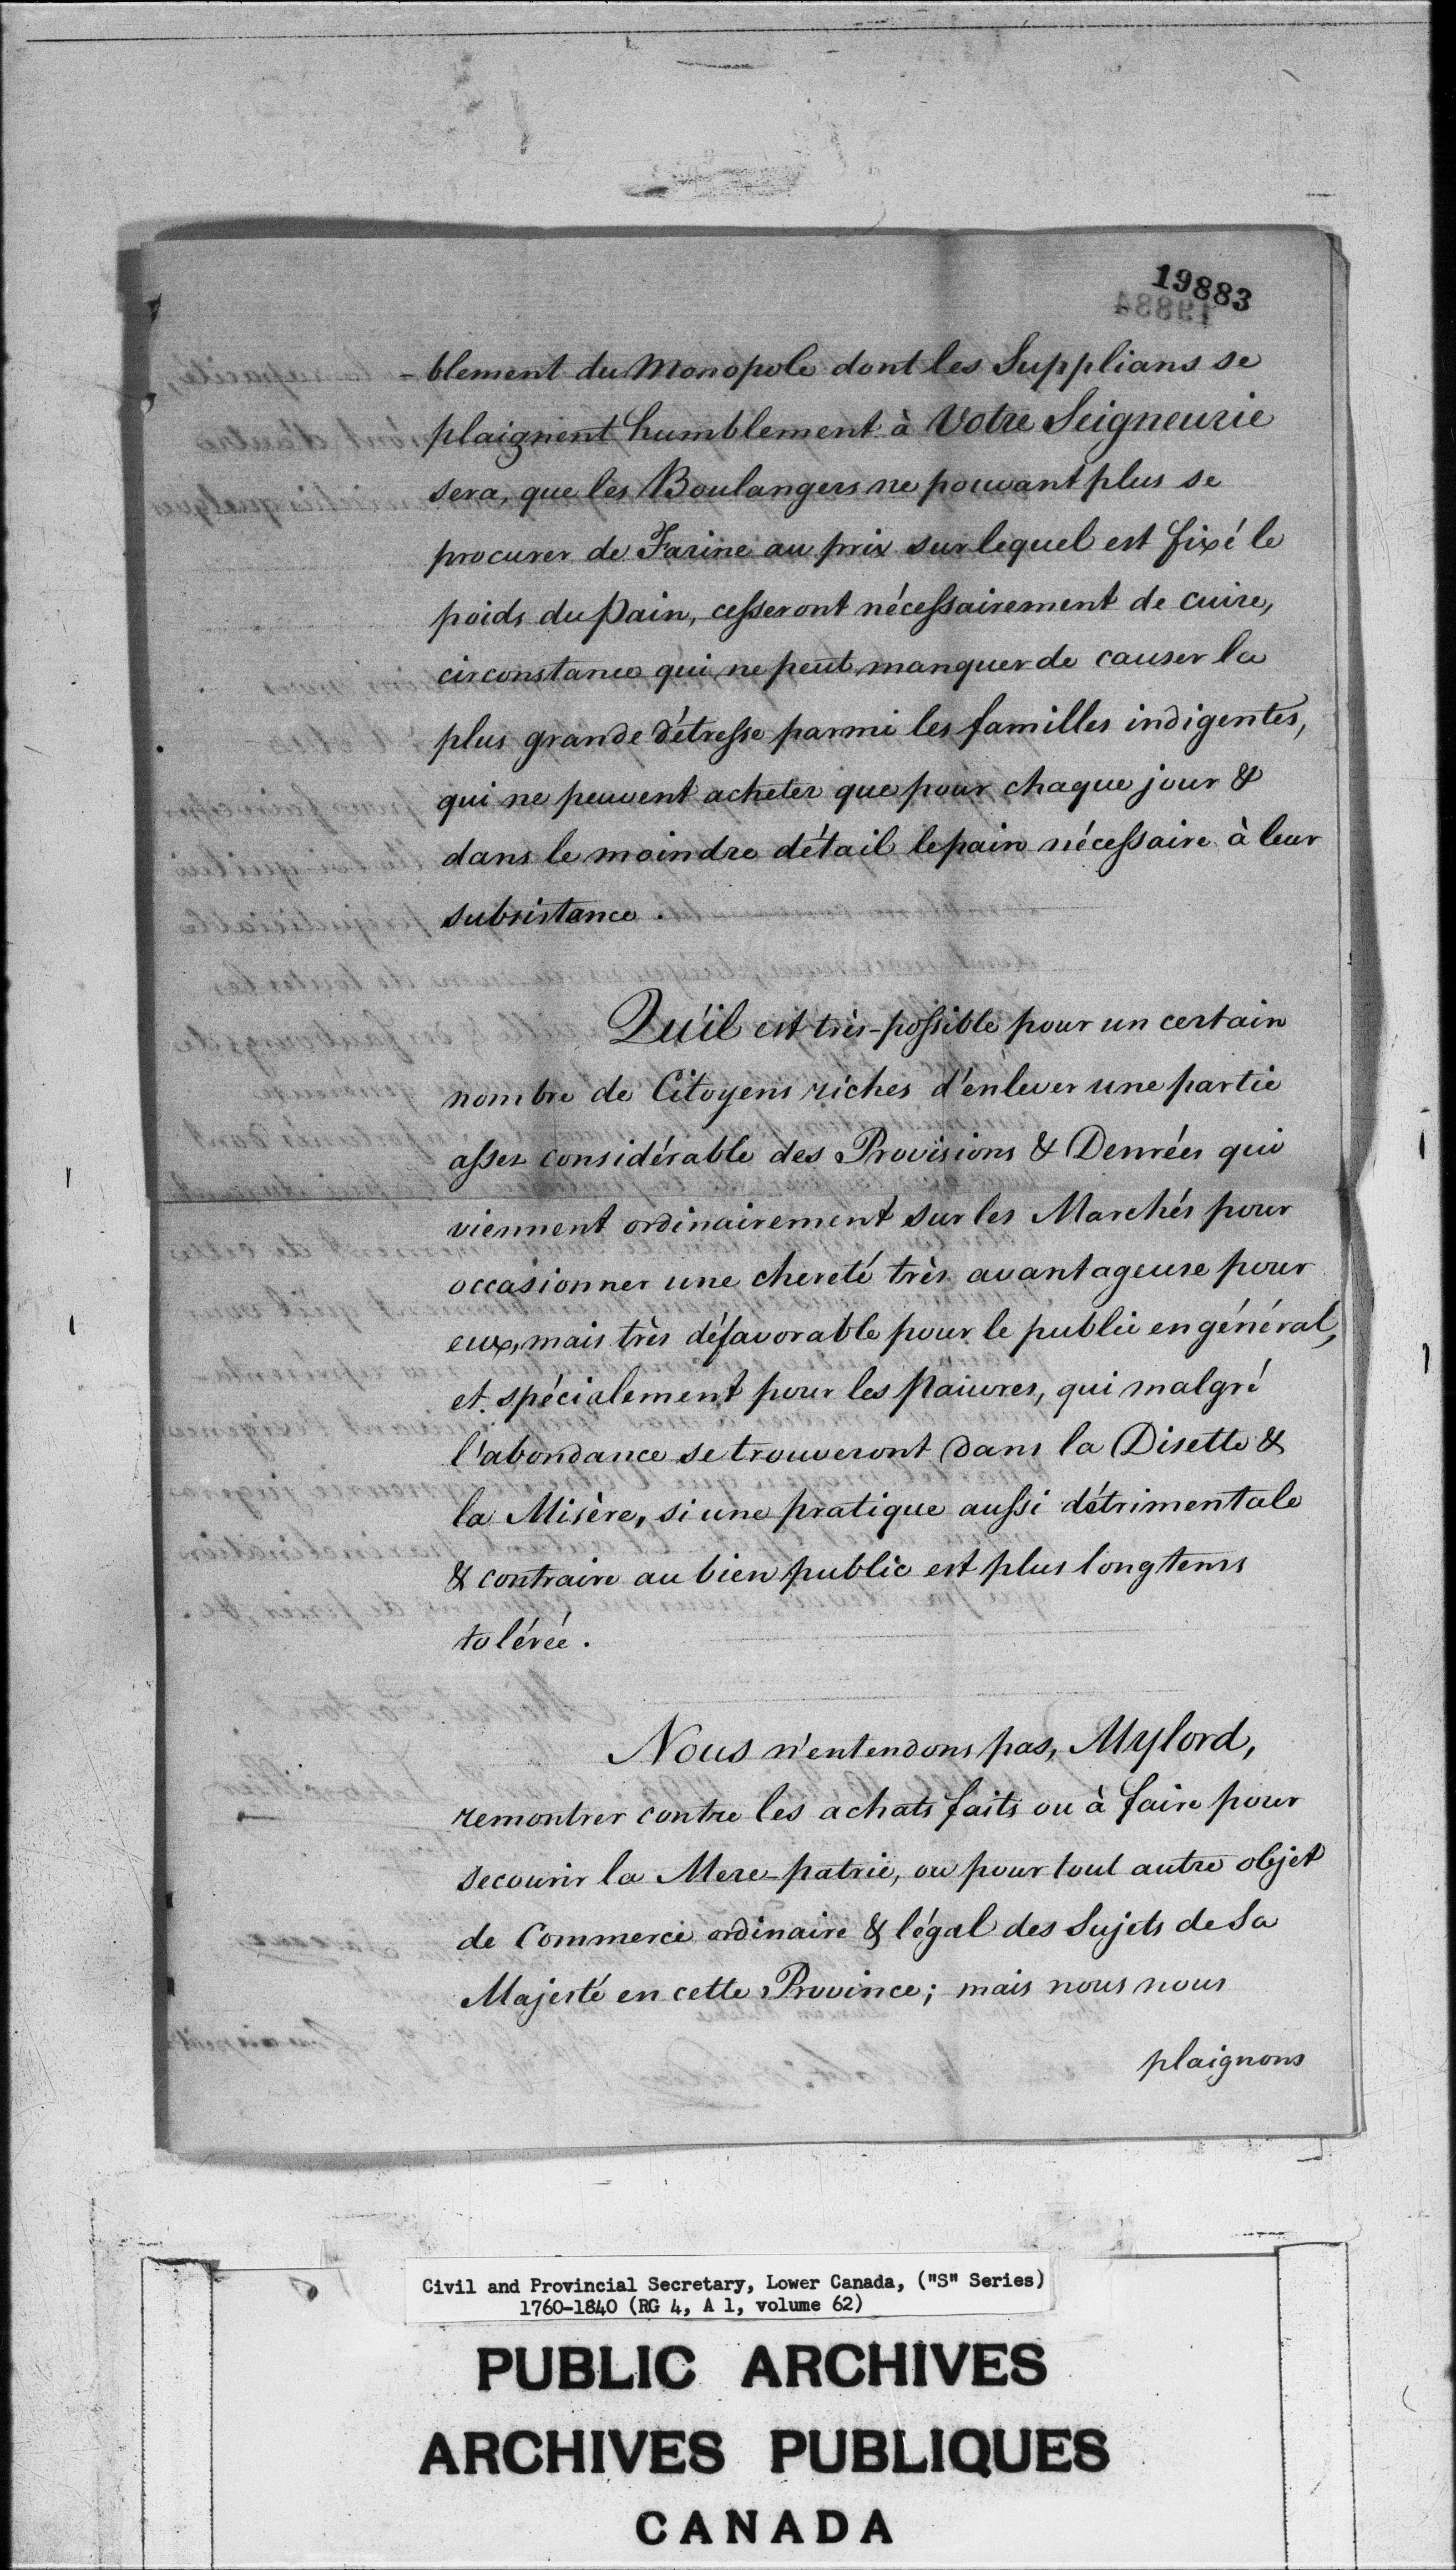 19883
-blement du Monopole dont les Supplians se
plaignent humblement à Votre Seigneurie
sera, que les Boulangers ne pouvant plus se
procurer de Farine au prix sur lequel est fixé le
poids du Pain, cesseront nécessairement de cuire,
circonstance qui ne peut manquer de causer la
plus grande détresse parmi les familles indigentes,
qui ne peuvent acheter que pour chaque jour &
dans le moindre détail le pain nécessaire à leur
subsistance.
Qu'il est très-possible pour un certain
nombre de Citoyens riches d'enlever une partie
assez considérable des Provisions & Denrées qui
viennent ordinairement sur les Marchés pour
occasionner une chereté très avantageuse pour
eux, mais très défavorable pour le public en général,
et spécialement pour les Pauvres, qui malgré
l'abondance se trouveront dans la Disette &
la Misère, si une pratique aussi détrimentale
& contraire au bien public est plus longtems
tolérée.
Nous n'entendons pas, Mylord,
remontrer contre les achats faits ou à faire pour
secourir la Mere-patrie, ou pour tout autre objet
de Commerce ordinaire & légal des Sujets de Sa
Majesté en cette Province; mais nous nous
plaignons
Civil and Provincial Secretary, Lower Canada, ("S" Series)
1760-1840 (RG 4, A 1, volume 62)
PUBLIC ARCHIVES
ARCHIVES PUBLIQUES
CANADA